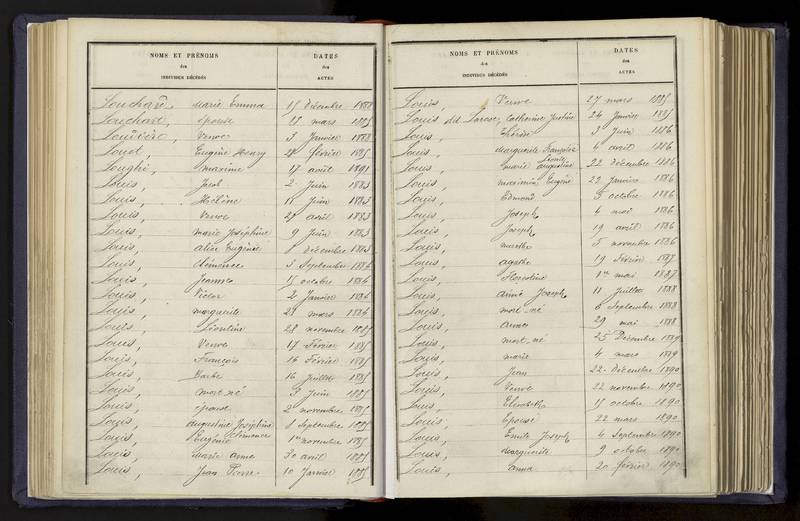 NOMS ET PRÉNOMS
des
INDIVIDUS DÉCÉDÉS
DATES
des
ACTES
Louchard, Marie Emma 15 décembre 1888
Louchart, épouse mars 1885
Veuve 3 Janvier 1888
Louet, Eugène Henry février 1885
Loughi, maxime 17 août 1891
Louis, Jacob 2 Juin 1883
Louis, Hélène Juin 1883
Louis, Veuve 27 avril 1883
Louis, Marie Joséphine 9 Juin 1883
Louis, alice Eugénie 1 décembre 1883
Louis, Clémence Septembre 1884
Louis, Jeanne 15 octobre 1884
Louis, Victor 2 Janvier 1886
Louis, marguerite 23 mars 1886
Louis, Léontine 28 novembre 1885
Louis, Veuve 17 Février 1885
Louis, François 16 Février 1885
Louis, Barbe 16 Juillet 1885
Louis, mort-né 3 Juin 1885
Louis, épouse 2 novembre 1885
Louis, augustine Joséphine Septembre 1885
Louis, Eugénie Clémence 1er novembre 1885
Louis, Marie anne 30 avril 1885
Louis, Jean Pierre 10 Janvier 1885
NOMS ET PRÉNOMS
des
INDIVIDUS DÉCÉDÉS
DATES
des
ACTES
Louis, Veuve 27 mars 1885
Louis dit Larose, Catherine Justine 24 Janvier 1885
Louis, 3 Juin 1886
Louis, Marguerite Françoise 4 avril 1886
Louis, marie Léonie augustine 22 décembre 1886
Louis, maximin Eugène 29 Janvier 1886
Louis, Edmond 5 octobre 1886
Louis, Joseph 4 mai 1886
Louis, Joseph 19 avril 1886
Louis, marthe 5 novembre 1886
Louis, agathe 19 Février 1887
Louis, Florentine 1er mai 1887
Louis, aimé Joseph 11 Juillet 1888
Louis, mort-né 6 Septembre 1888
Louis, anne 29 mai 1888
Louis, mort-né 25 Décembre 1889
Louis, marie 4 mars 1889
Louis, Jean 22 décembre 1890
Louis, Veuve 22 novembre 1890
Louis, Elisabeth 15 octobre 1890
Louis, Epouse 22 mars 1890
Louis, Emile Joseph 4 Septembre 1890
Louis, Marguerite 9 octobre 1890
Louis, anna 20 février 1890